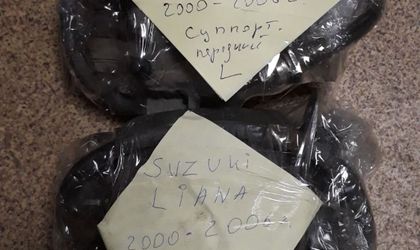 2000-2006г.
суппорт.
передний
L
SUZUKI
LIANA
2000-2006г.